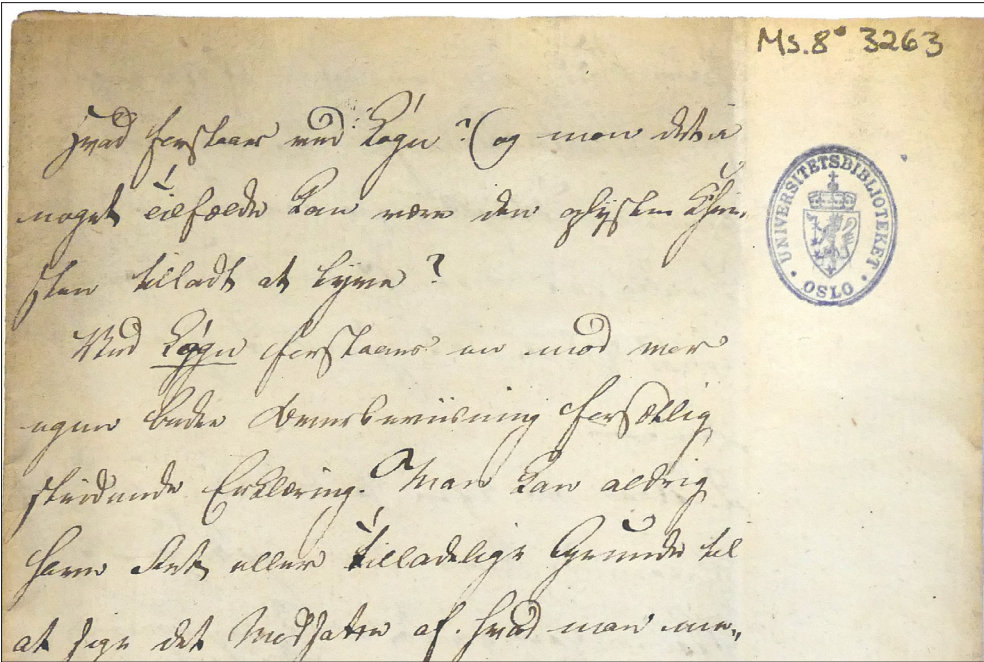 Ms. 8° 3263
UNIVERSITETSBIBLIOTEKET
OSLO
Hvad forstaaes ved Løgn? (og mon det i
noget Tilfælde kan være den oplyste Chri„
sten tilladt at lyve?
Ved Løgn forstaaes en mod vor
egen bedre Overbeviisning forsætlig
stridende Erklæring. Man kan aldrig
have Ret eller tilladelige Grunde til
at sige det Modsatte af hvad man me„